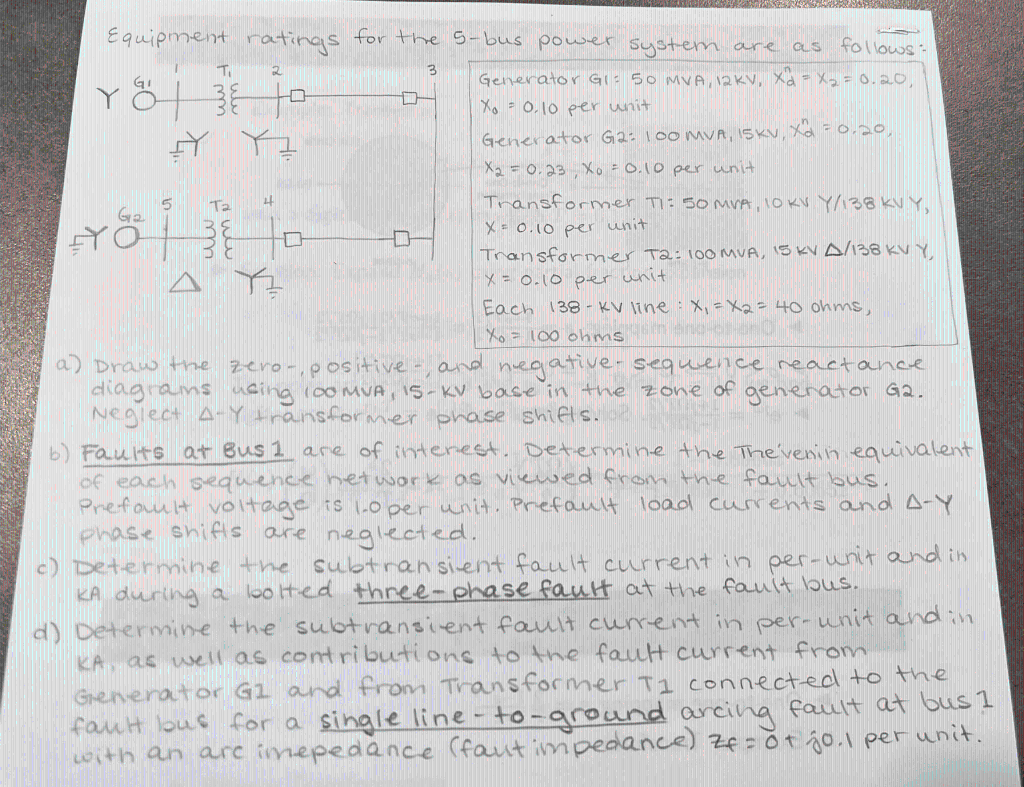 Equipment ratings for the 5-bus power system are as follows:
1 T1 2 3
G1
Y
Y Y
5 T2 4
G2
Y
Δ Y
Generator G1: 50 MVA, 12KV, X"d = X2 = 0.20,
X0 = 0.10 per unit
Generator G2: 100 MVA, 15KV, X"d = 0.20,
X2 = 0.23, X0 = 0.10 per unit
Transformer T1: 50 MVA, 10 KV Y/138 KV Y,
X = 0.10 per unit
Transformer T2: 100 MVA, 15 KV Δ/138 KV Y,
X = 0.10 per unit
Each 138-KV line: X1 = X2 = 40 ohms,
X0 = 100 ohms
a) Draw the zero-, positive-, and negative-sequence reactance
diagrams using 100 MVA, 15-KV base in the zone of generator G2.
Neglect Δ-Y transformer phase shifts.
b) Faults at Bus 1 are of interest. Determine the Thévenin equivalent
of each sequence network as viewed from the fault bus.
Prefault voltage is 1.0 per unit. Prefault load currents and Δ-Y
phase shifts are neglected.
c) Determine the subtransient fault current in per-unit and in
KA during a bolted three-phase fault at the fault bus.
d) Determine the subtransient fault current in per-unit and in
KA, as well as contributions to the fault current from
Generator G1 and from Transformer T1 connected to the
fault bus for a single line-to-ground arcing fault at bus 1
with an arc imepedance (faut impedance) Zf = 0 + j0.1 per unit.